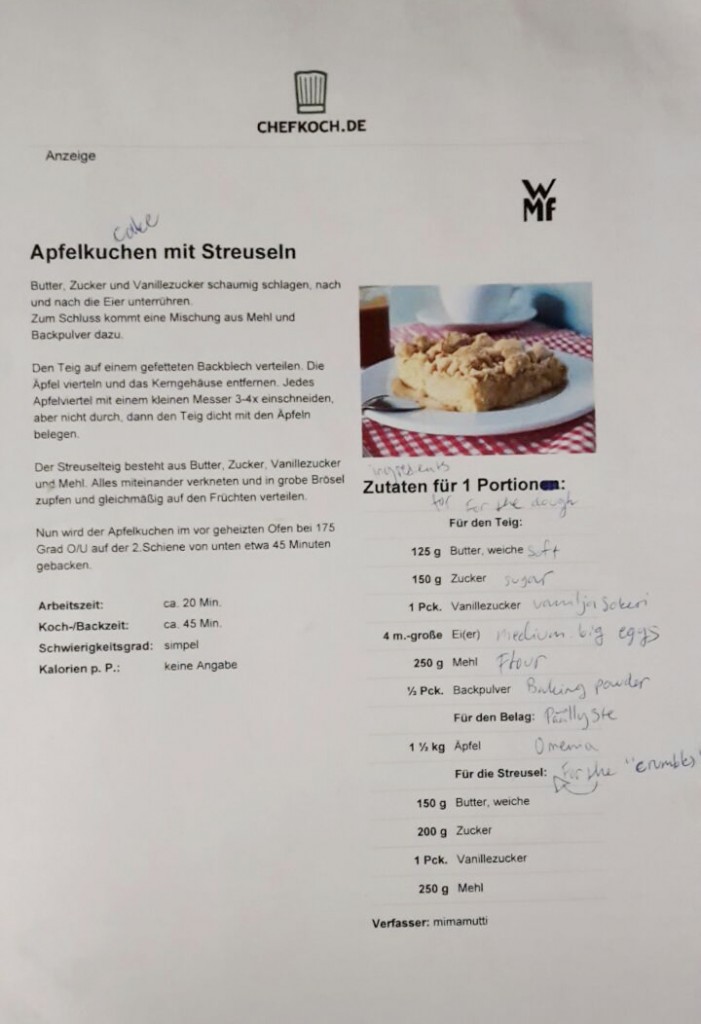 CHEFKOCH.DE
Anzeige
WMF
cake
Apfelkuchen mit Streuseln
Butter, Zucker und Vanillezucker schaumig schlagen, nach
und nach die Eier unterrühren.
Zum Schluss kommt eine Mischung aus Mehl und
Backpulver dazu.
Den Teig auf einem gefetteten Backblech verteilen. Die
Äpfel vierteln und das Kerngehäuse entfernen. Jedes
Apfelviertel mit einem kleinen Messer 3-4x einschneiden,
aber nicht durch, dann den Teig dicht mit den Äpfeln
belegen.
Der Streuselteig besteht aus Butter, Zucker, Vanillezucker
und Mehl. Alles miteinander verkneten und in grobe Brösel
zupfen und gleichmäßig auf den Früchten verteilen.
Nun wird der Apfelkuchen im vor geheizten Ofen bei 175
Grad O/U auf der 2.Schiene von unten etwa 45 Minuten
gebacken.
Arbeitszeit: ca. 20 Min.
Koch-/Backzeit: ca. 45 Min.
Schwierigkeitsgrad: simpel
Kalorien p. P.: keine Angabe
ingredients
Zutaten für 1 Portionen:
for for the dough
Für den Teig:
125 g Butter, weiche soft
150 g Zucker sugar
1 Pck. Vanillezucker vanilijn sokeri
4 m.-große Ei(er) medium big eggs
250 g Mehl Flour
½ Pck. Backpulver Baking powder
Für den Belag: Päällyste
1 ½ kg Äpfel Omena
Für die Streusel: For the "crumbles"
150 g Butter, weiche
200 g Zucker
1 Pck. Vanillezucker
250 g Mehl
Verfasser: mimamutti